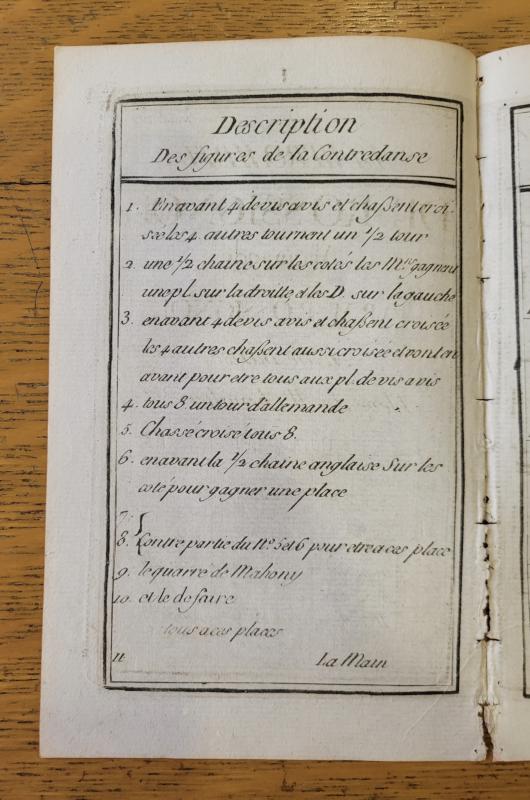 Description
Des figures de la Contredanse
1. En avant 4 de vis avis et chaßent croi-
sée les 4 autres tournent un 1/2 tour
2. une 1/2 chaine sur les cotés les M.rs gagnent
une pl. sur la droitte, et les D. sur la gauche
3. en avant 4 de vis avis et chaßent croisée
les 4 autres chaßent aussi croisée et vont en
avant pour etre tous aux pl. de vis avis
4. tous 8. un tour d'allemande
5. Chassé croisé tous 8.
6. en avant la 1/2 chaine anglaise Sur les
coté pour gagner une place
7.
8. Contre partie du N.o 5 et 6 pour etre a ces place
9. le quarré de Mahony
10. et le defaire
tous a ces places
11 La Main